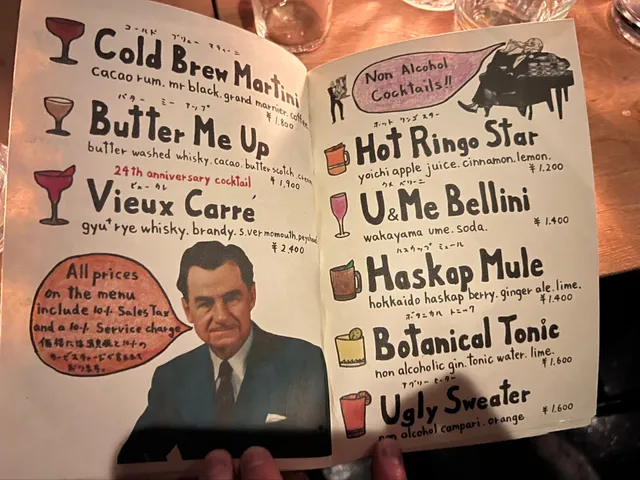 コールド ブリュー マティーニ
Cold Brew Martini
cacao rum. mr black. grand marnier. coffee.
¥1.800
バター ミー アップ
Butter Me Up
butter washed whisky. cacao. butter scotch. cream
¥1,900
24th anniversary cocktail
ビュー カレ
Vieux Carré
gyu⁺rye whisky. brandy. s.ver momouth.
¥2,400
All prices
on the menu
include 10% Sales Tax
and a 10% Service charge
Non Alcohol
Cocktails!!
ホット リンゴ スター
Hot Ringo Star
yoichi apple juice. cinnamon. lemon.
¥1.200
U&Me Bellini
wakayama ume. soda.
¥1.400
ハスカップ ミュール
Haskap Mule
hokkaido haskap berry. ginger ale. lime.
¥1.400
ボタニカル トニック
Botanical Tonic
non alcoholic gin. tonic water. lime.
¥1.600
アグリー セーター
Ugly Sweater
non alcohol campari. orange
¥1.600